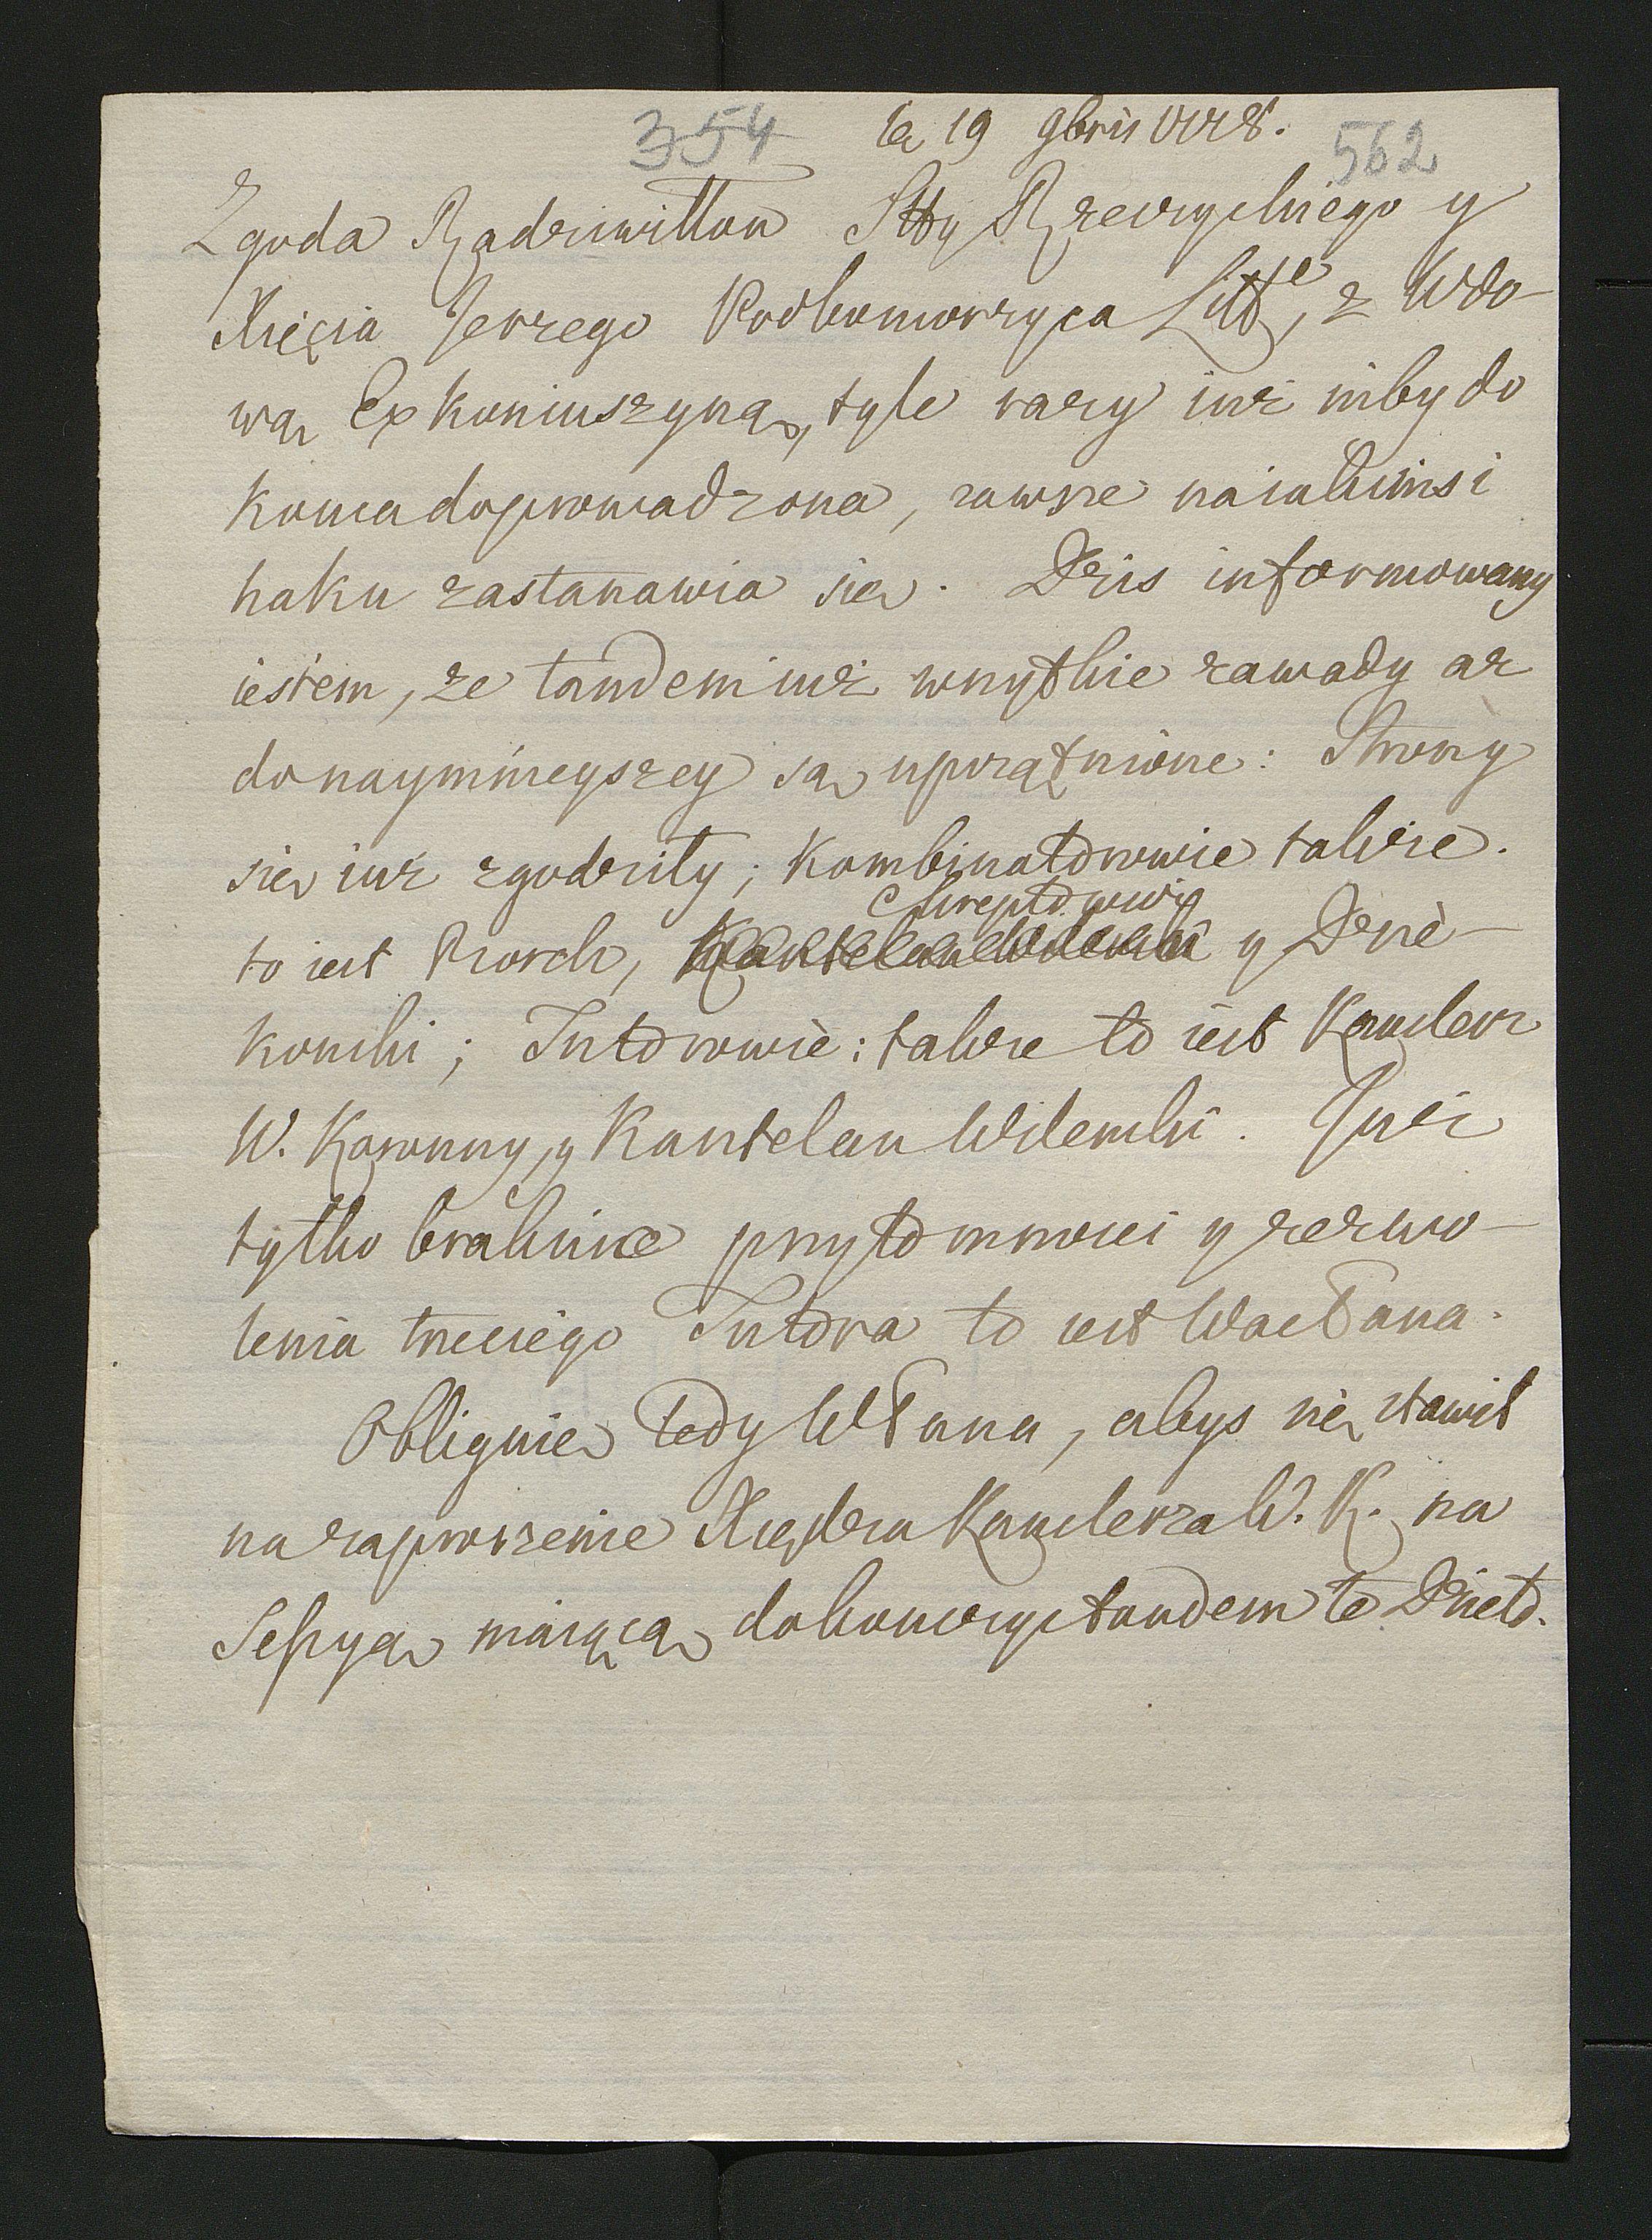 354 le 19 9bris 1778. 562
Zgoda Radziwiłłow Stty Rzeczyckiego y
Xięcia Jerzego Podkomorzyca Litt, z Wdo-
wą Exkoniuszyną, tyle razy iuż niby do
konca doprowadzona, zawsze na iakimsi
haku zastanawia się. Dzis informowany
iestem, ze tandem iuż wszystkie zawady az
do naymnieyszey są uprzątnione: Strony
się iuż zgodziły; Kombinatorowie takze.
Chreptowicz
to iest Borch, Kasztelan Wilenski y Dzie-
konski; Tutorowie: takze to iest Kanclerz
W. Koronny, y Kasztelan Wilenski. Już
tylko brakuie przytomnosci y zezwo-
lenia trzeciego Tutora to iest WacPana.
Obliguię tedy WPana, abys się stawił
na zaproszenie Xiędza Kanclerza W. K. na
Sessyą maiącą dokonczyc tandem te Dzieło.